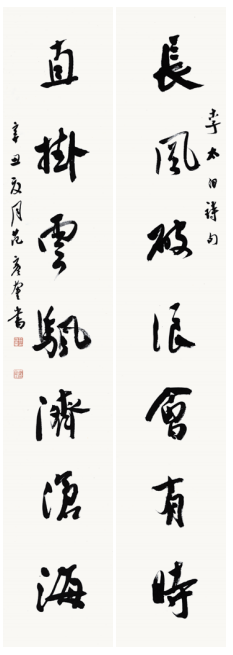 李太白詩句
長風破浪會有時
直掛雲颿濟滄海
辛丑夏月范彥奎書